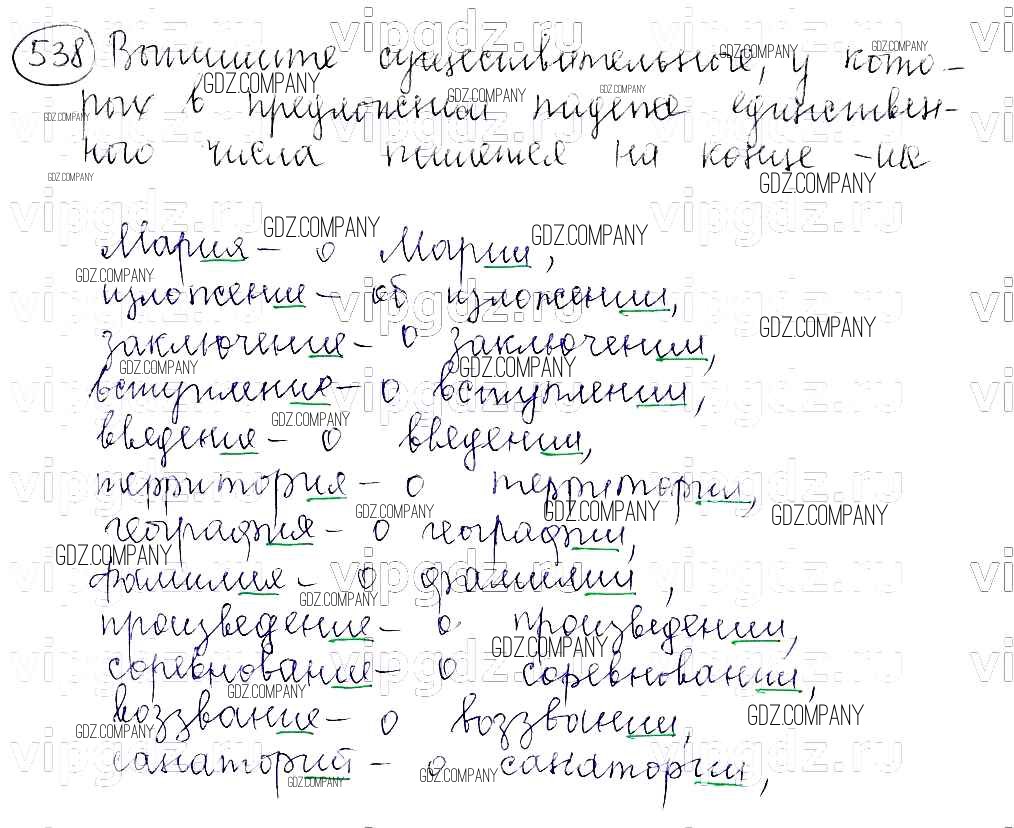 538 Выпишите существительные, у кото-
рых в предложной падеже единствен-
ного числа пишется на конце -ии
Мария – о Марии,
изложение – об изложении,
заключение – о заключении,
вступление – о вступлении,
введение – о введении,
территория – о территории,
география – о географии,
фамилия – о фамилии,
произведение – о произведении,
соревнование – о соревновании,
воззвание – о воззвании,
санаторий – о санатории,